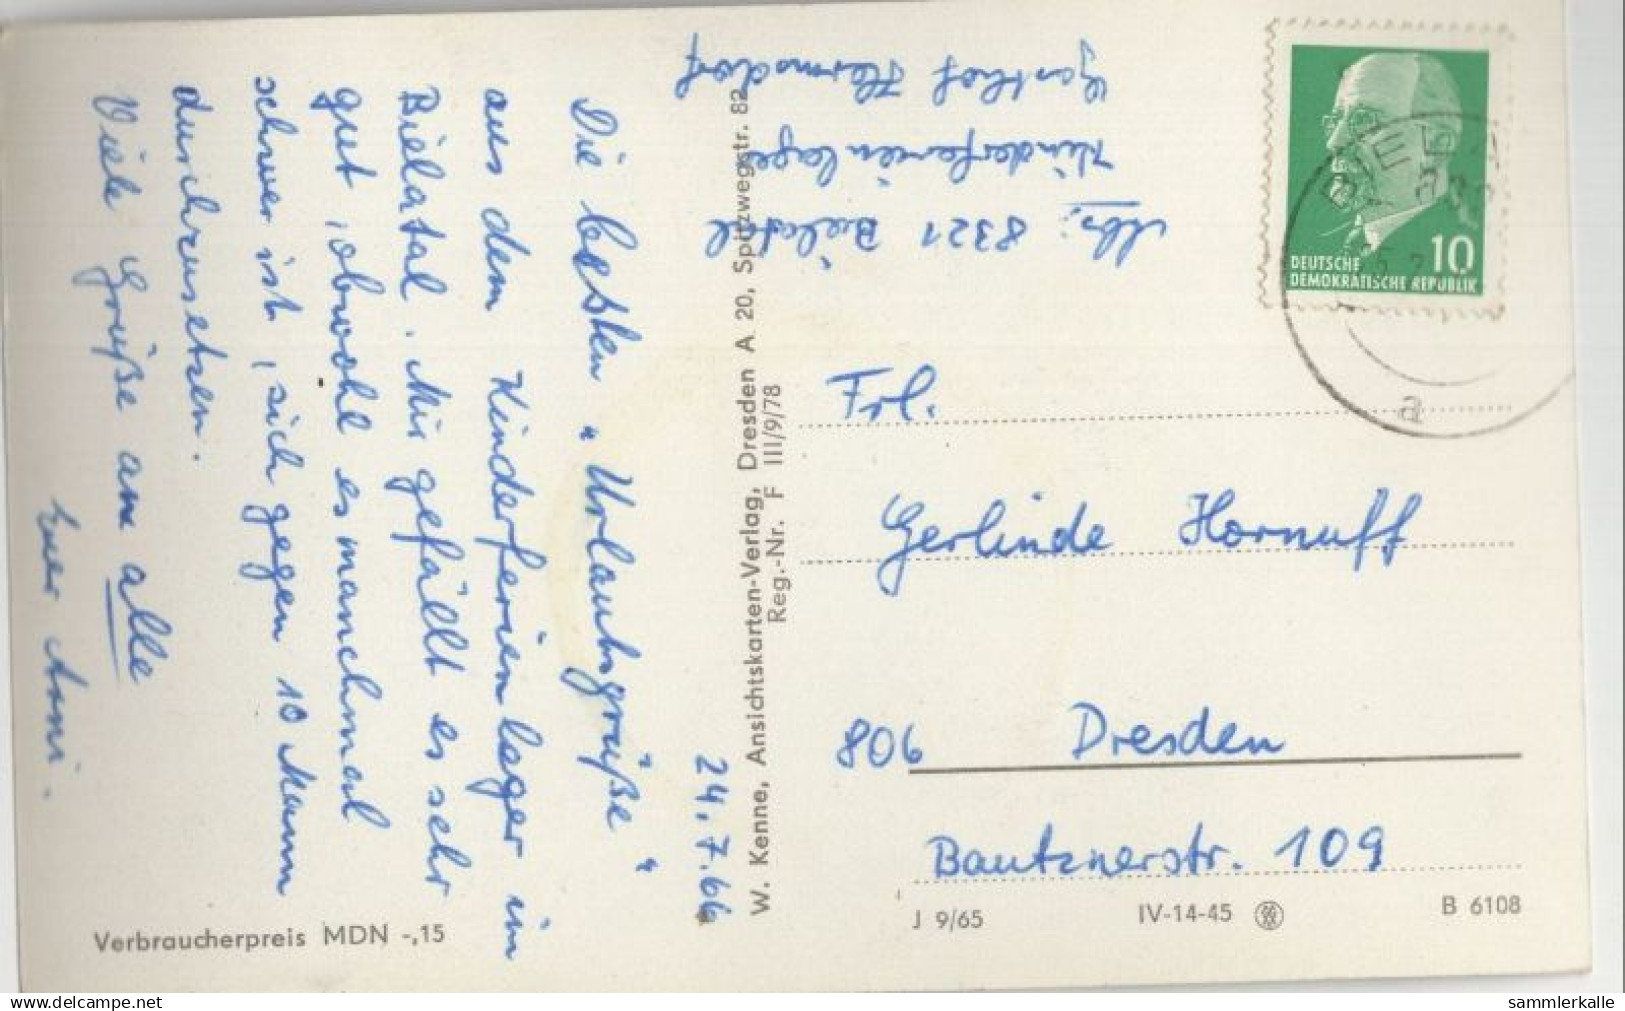 24.7.66
Die besten „Urlaubsgrüße“
aus dem Kinderferienlager im
Bielatal. Mir gefällt es sehr
gut, obwohl es manchmal
schwer ist, sich gegen 10 Mann
durchzusetzen.
Viele Grüße an alle
Euer Anni.
Abs.: 8321 Bielatal
Kinderferienlager
Gasthof Hermsdorf
W. Kenne, Ansichtskarten-Verlag, Dresden A 20, Spitzwegstr. 82
Reg.-Nr. F III/9/78
10
DEUTSCHE
DEMOKRATISCHE REPUBLIK
a
Frl.
Gerlinde Hornuff
806 Dresden
Bautznerstr. 109
Verbraucherpreis MDN -,15
J 9/65
IV-14-45
B 6108
www.delcampe.net
sammlerkalle